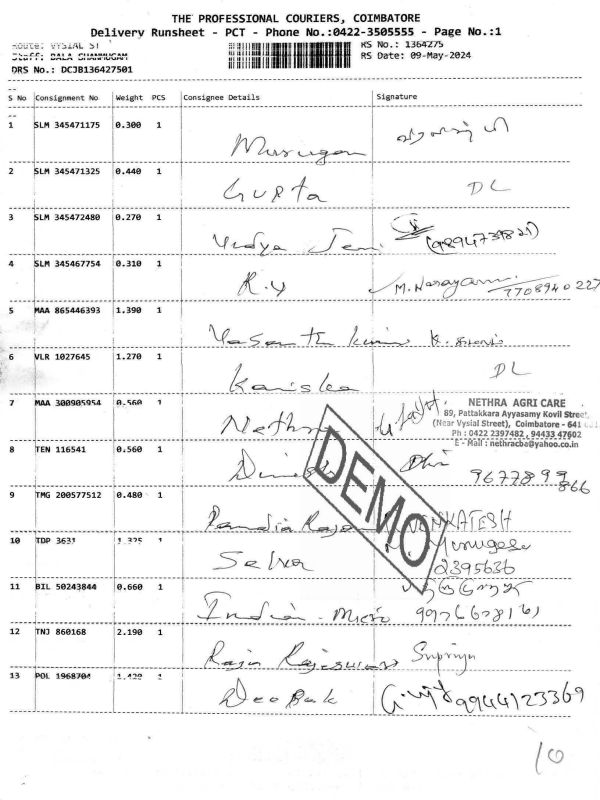 THE PROFESSIONAL COURIERS, COIMBATORE
Delivery Runsheet - PCT - Phone No.:0422-3505555 - Page No.:1
Route: VYSIAL ST
RS No.: 1364275
Staff: BALA SHANMUGAM
RS Date: 09-May-2024
DRS No.: DCJB136427501
S No Consignment No Weight PCS Consignee Details Signature
1 SLM 345471175 0.300 1
Murugan
2 SLM 345471325 0.440 1
Gupta DL
3 SLM 345472480 0.270 1
Vidya Jeni
4 SLM 345467754 0.310 1
R.V M. Narayanan 7708940227
5 MAA 865446393 1.390 1
Vasanth Kumar K.
6 VLR 1027645 1.270 1
Kaniska DL
7 MAA 300905954 0.560 1
Nethra
NETHRA AGRI CARE
89, Pattakkara Ayyasamy Kovil Street,
(Near Vysial Street), Coimbatore - 641
Ph : 0422 2397482, 94433 47602
E - Mail : nethracba@yahoo.co.in
8 TEN 116541 0.560 1
Dinesh 9677899866
9 TMG 200577512 0.480 1
Pandia Rajan VENKATESH
10 TDP 3631 1.325 1
Murugesa
Selva 2395636
11 BIL 50243844 0.660 1
Indian - Micro
12 TNJ 860168 2.190 1
Raja Rajeswari Supriya
13 POL 1968704 1.420 1
Deepak 9944123369
DEMO
10